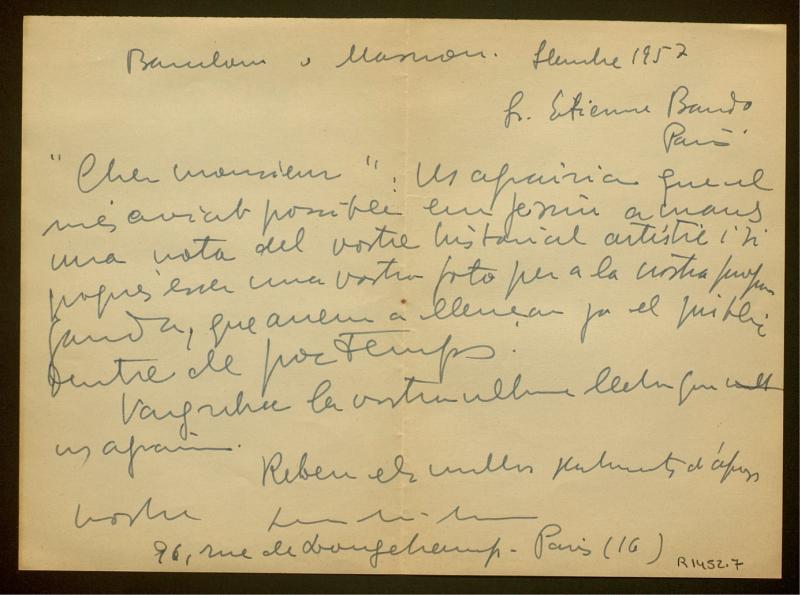 Barcelona o Masnou. Setembre 1957
Sr. Etienne Bando
París
"Cher monsieur". Us agrairia que el
més aviat possible em fessin a mans
una nota del vostre historial artístic i si
pogués esser una vostra foto per a la nostra propa
ganda, que anem a llençar ja el públic
dentre de poc temps.
Vaig rebre la vostra ultima lletra que molt
us agraïa.
Rebeu els millors d'afecte
vostre
96, rue de Longchamp - Paris (16)
R 1452.7